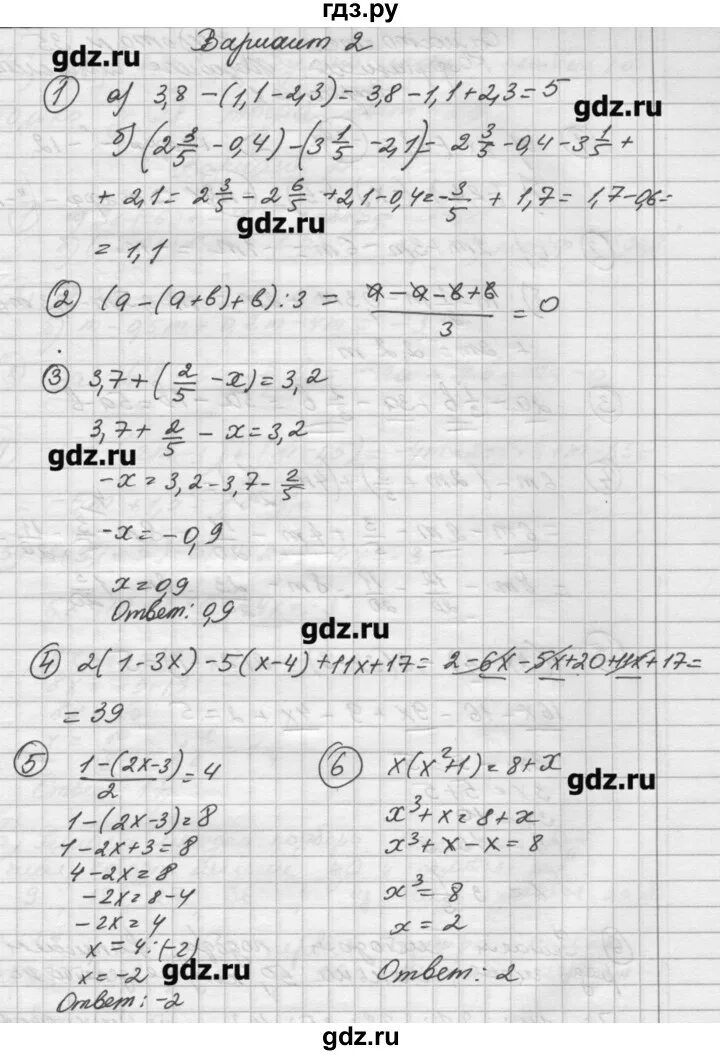 гдз.ру
Вариант 2
gdz.ru
1 а) 3,8 - (1,1 - 2,3) = 3,8 - 1,1 + 2,3 = 5
gdz.ru
б) (2 3/5 - 0,4) - (3 1/5 - 2,1) = 2 3/5 - 0,4 - 3 1/5 +
+ 2,1 = 2 3/5 - 2 6/5 + 2,1 - 0,4 = -3/5 + 1,7 = 1,7 - 0,6 =
gdz.ru
= 1,1
2 (а - (а + в) + в) : 3 = (а - а - в + в)/3 = 0
3 3,7 + (2/5 - x) = 3,2
3,7 + 2/5 - x = 3,2
gdz.ru
-x = 3,2 - 3,7 - 2/5
-x = -0,9
x = 0,9
Ответ: 0,9
gdz.ru
4 2(1 - 3x) - 5(x - 4) + 11x + 17 = 2 - 6x - 5x + 20 + 11x + 17 =
= 39
5 (1 - (2x - 3))/2 = 4
1 - (2x - 3) = 8
1 - 2x + 3 = 8
4 - 2x = 8
-2x = 8 - 4
-2x = 4
x = 4 : (-2)
x = -2
gdz.ru
Ответ: -2
6 x(x² + 1) = 8 + x
gdz.ru
x³ + x = 8 + x
x³ + x - x = 8
x³ = 8
x = 2
Ответ: 2
gdz.ru
gdz.ru